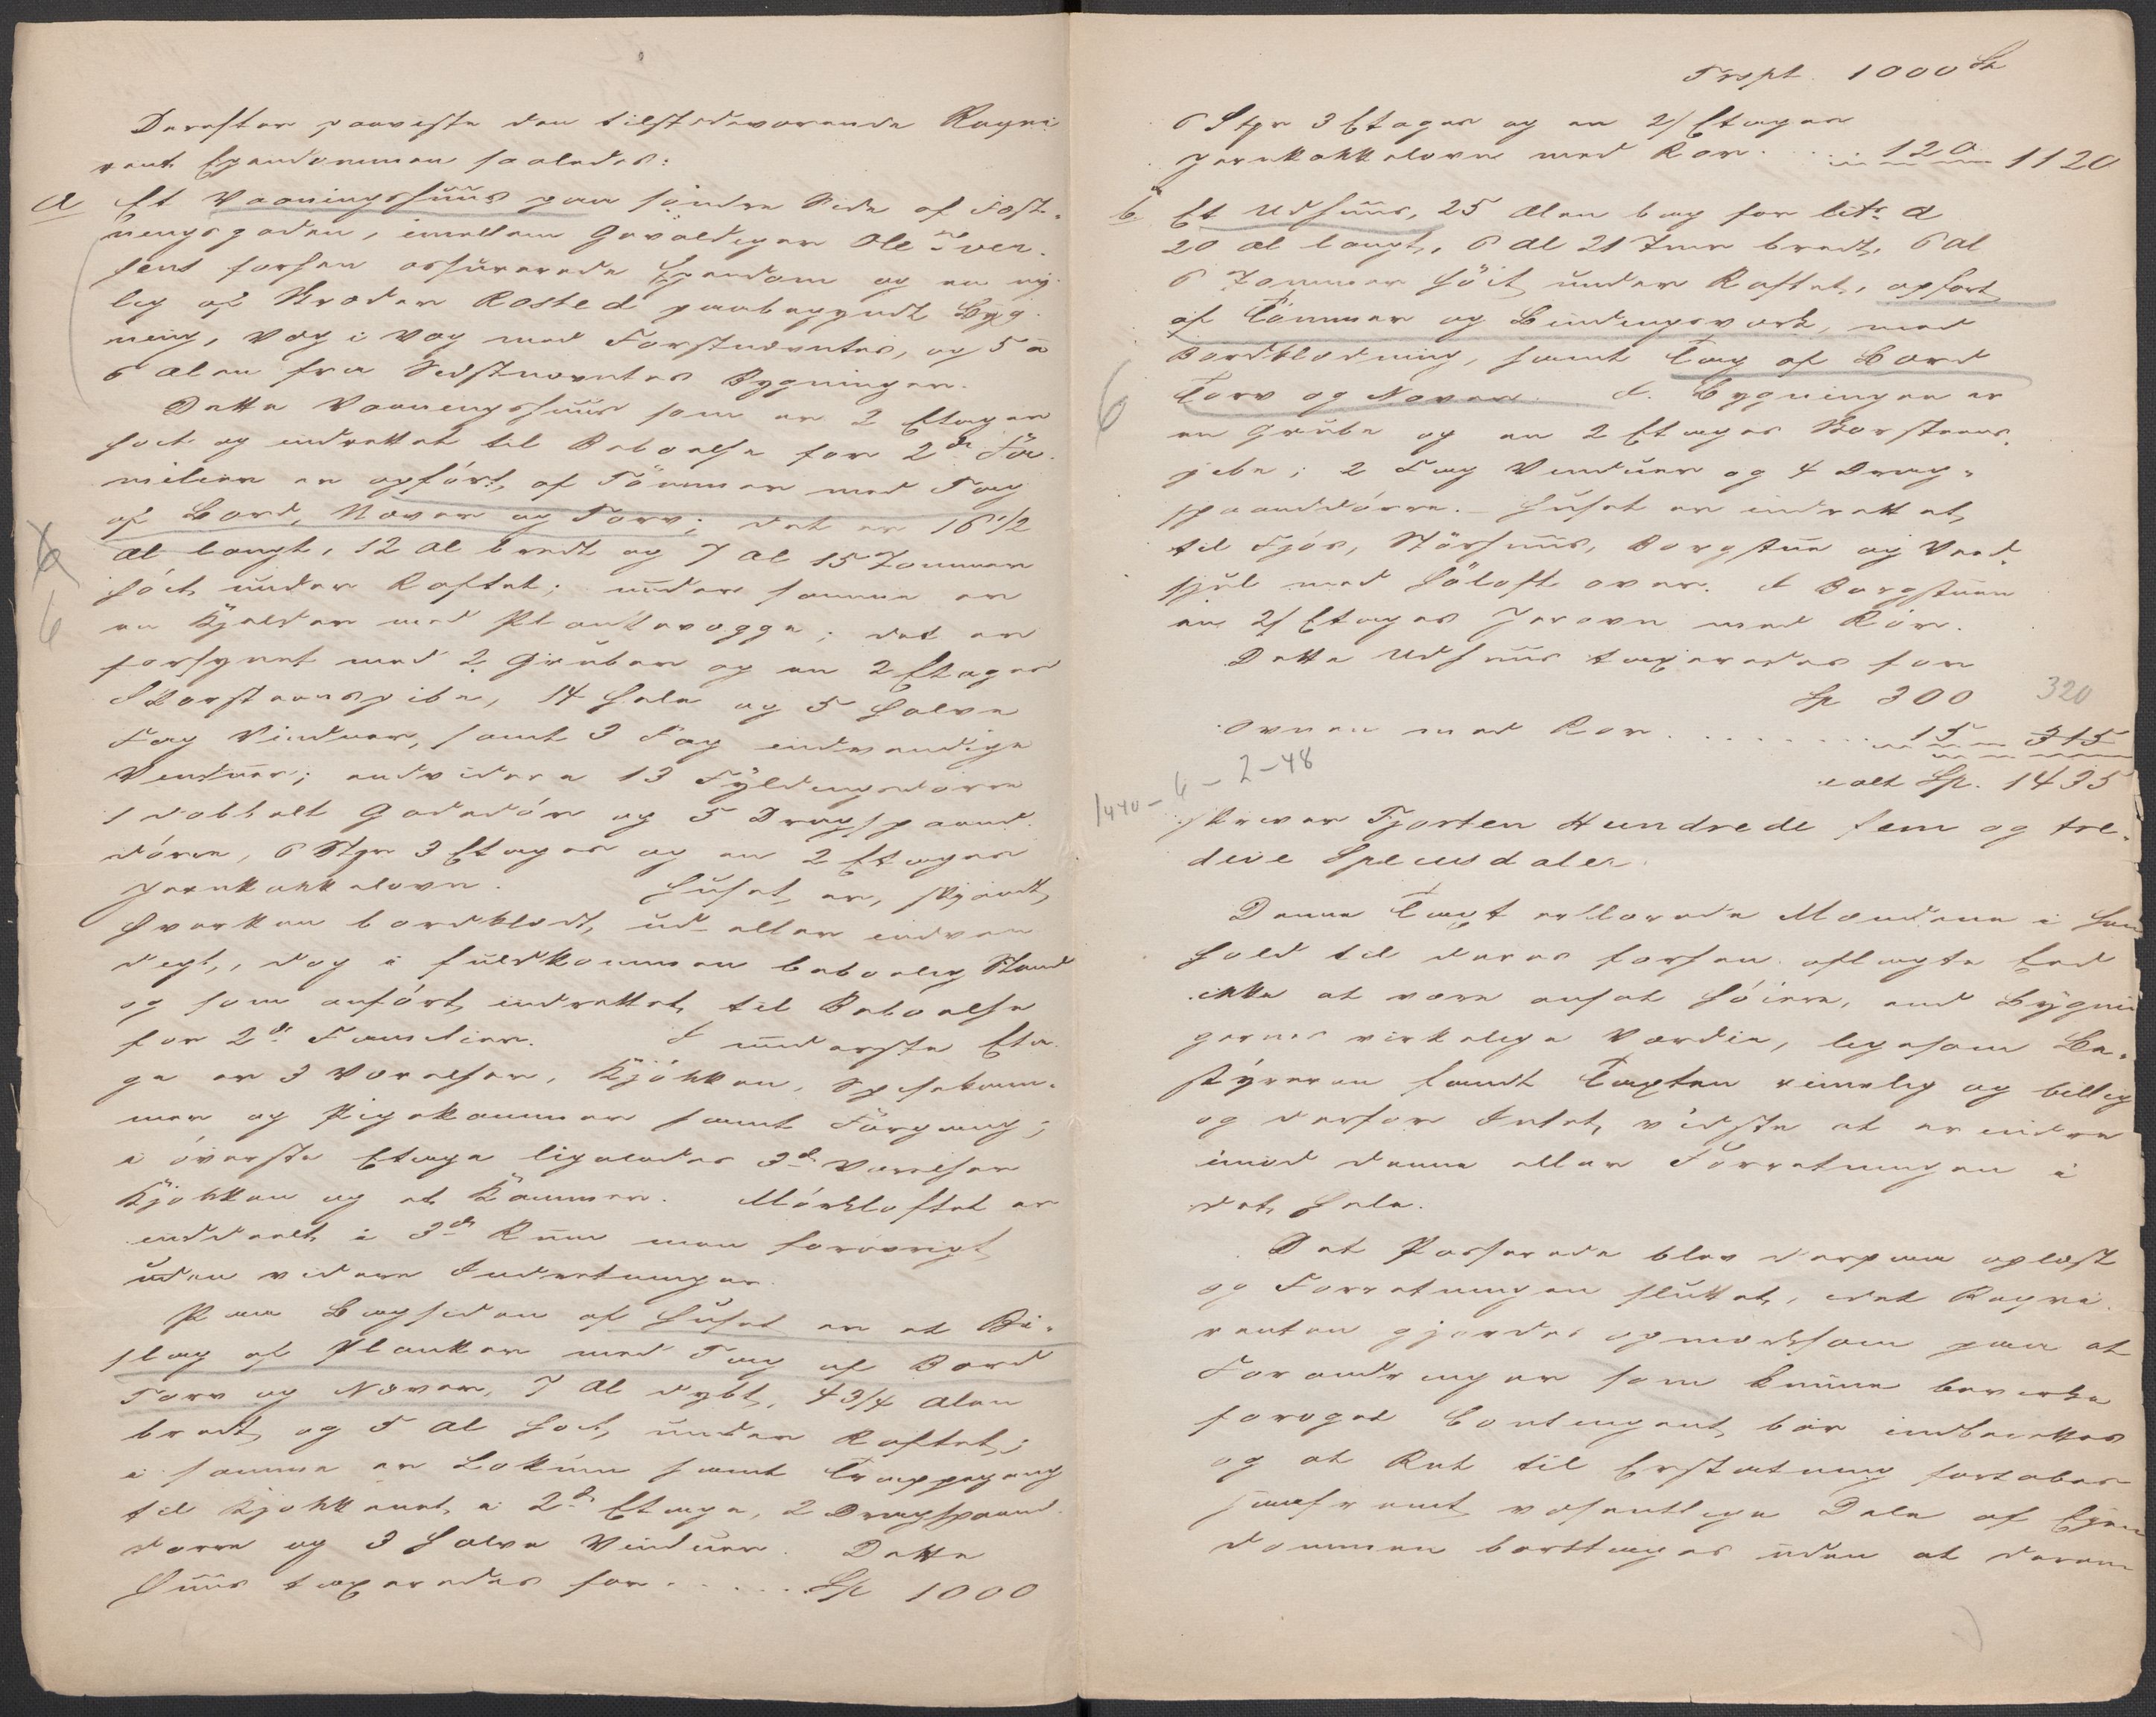 Derefter paaviste den tilstedeværende Reqvi
rent Ejendommen saaledes:
a Et Vaaningshuus paa søndre Side af Fæst-
ningsgaden, imellem Gevaldiger Ole Iver-
sens forhen assurerede Ejendom og en ny-
lig af Kroder Rosted paabegyndt Byg-
ning, Væg i Væg med Førstnævntes, og 5 a
6 Alen fra Sidstnævntes Bygninger.
Dette Vaaningshuus som er 2 Etager
høit og indrettet til Beboelse for 2de Fa-
milier er opført af Tømmer med Tag
af Bord, Næver og Torv; det er 16 1/2
Al langt, 12 Al bredt og 7 Al 15 Tommer
høit under Raftet; under samme er
en Kjelder med Plankevægge; det er
forsynet med 2 Gruber og en 2 Etages
Skorsteenspibe, 14 hele og 5 halve
Fag Vinduer, samt 3 Fag indvendige
Vinduer; endvidere 13 Fyldingsdørre
1 dobbelt Gadedør og 5 Dragspaand-
dørre, 6 Stkr 3 Etages og en 2 Etages
Jernkakkelovn. Huset er, skjøndt
hverken bordklædt ud- eller indven
digt, dog i fuldkommen beboelig Stand
og som anført indrettet til Beboelse
for 2de Familier. I underste Eta-
ge er 3 Værelser, Kjøkken, Spisekam-
mer og Pigekammer samt Forgang;
i øverste Etage ligeledes 3de Værelser
Kjøkken og et Kammer. Mørkloftet er
inddeelt i 3de Rum men forøvrigt
uden videre Indretninger.
Paa Bagsiden af Huset er et Bi-
slag af Planker med Tag af Bord
Torv og Næver, 7 Al dybt, 4 3/4 Alen
bredt og 5 Al høit under Raftet;
i samme er Lokum samt Trappegang
til Kjøkkenet i 2de Etage, 2 Dragspaand-
dørre og 3 halve Vinduer. Dette
Huus taxeredes for . . . . . . Sp 1000
6
6
Trspt. 1000 Sp
6 Stkr 3 Etages og en 2 Etages
Jernkakkelovn med Rør . . . 120 1120
b. Et Udhuus, 25 Alen bag for litr a
20 Al langt, 6 Al 21 Tmr bredt, 6 Al
6 Tommer høit under Raftet, opført
af Tømmer og Bindingsværk, med
Bordklædning, samt Tag af Bord
Torv og Næver. I Bygningen er
en Grube og en 2 Etages Skorsteens-
pibe; 2 Fag Vinduer og 4 Drag-
spaanddørre. Huset er indrettet
til Fjøs, Størhuus, Borgstue og Ved-
skjul med Høloft over. I Borgstuen
en 2 Etages Jernovn med Rør.
Dette Udhuus taxeredes for
Sp 300 320
Ovnen med Rør . . . . . . . . 15 315
ialt Sp. 1435
1440 - 6 - 2 - 48
skriver Fjorten Hundrede fem og tre-
dive Speciesdaler.
Denne Taxt erklærede Mændene i Hen
hold til deres forhen aflagte Eed
ikke at være ansat høiere, end Bygnin
gernes virkelige Værdie, ligesom Be-
styreren fandt Taxten rimelig og billig
og derfor Intet vidste at erindre
imod denne eller Forretningen i
det Hele.
Det Passerede blev derpaa oplæst
og Forretningen sluttet, idet Reqvi-
renten gjordes opmærksom paa at
Forandringer som kunne bevirke
forøget Contingent bør indberettes
og at Ret til Erstatning fortabes
saafremt væsentlige Dele af Ejen
dommen borttages uden at derom
6